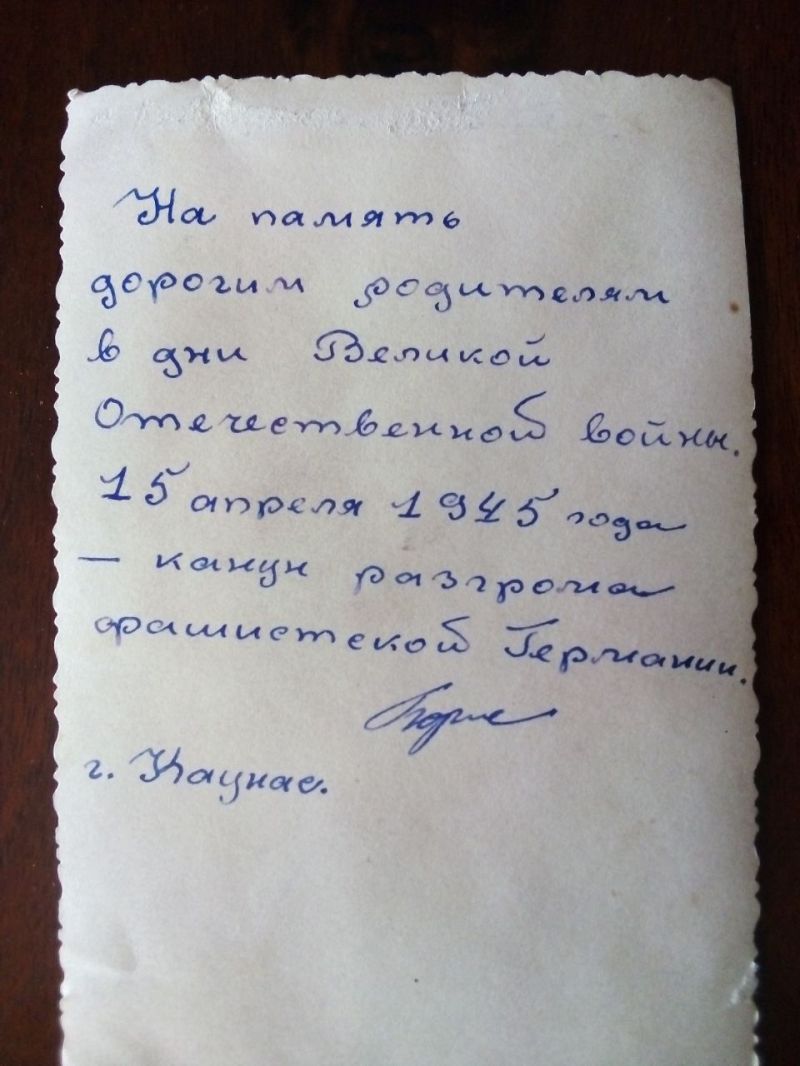 На память
дорогим родителям
в дни Великой
Отечественной войны.
15 апреля 1945 года
— канун разгрома
фашистской Германии.
Борис
г. Каунас.